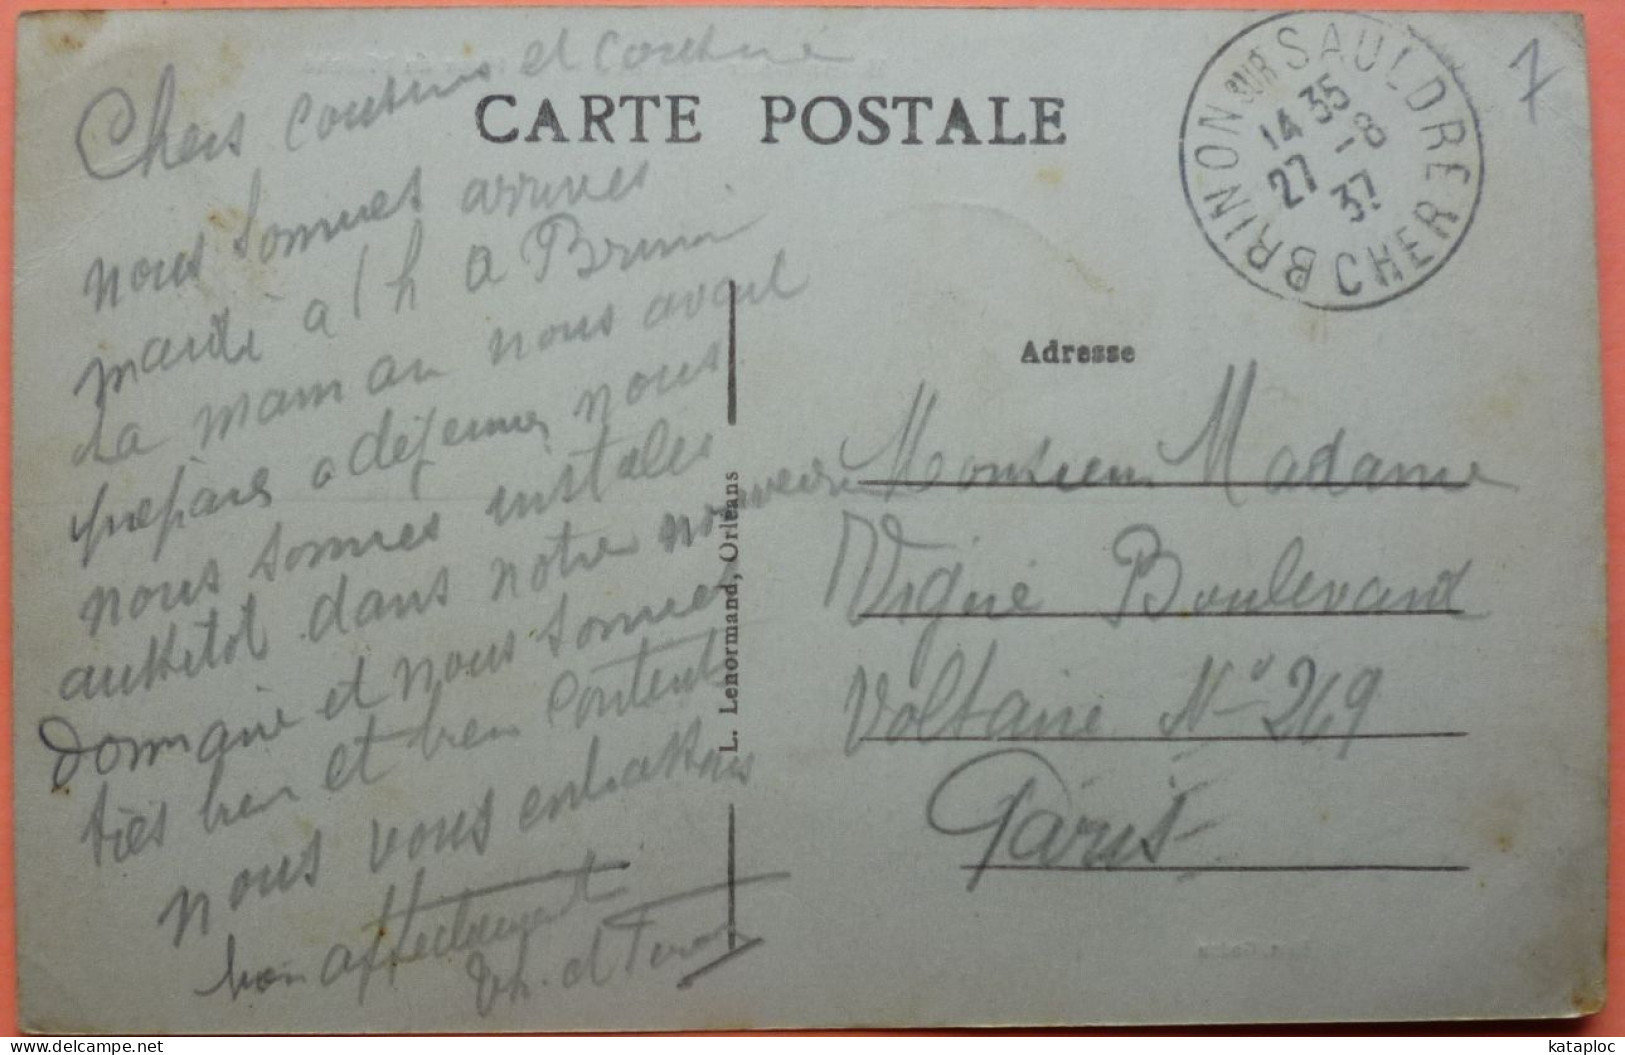 CARTE POSTALE
BRINON SUR SAULDRE
14 35
27 -8
37
CHER
7
Chers cousins et cousine
nous sommes arrives
mardi a 1 h a Brinon
La maman nous avait
prépare a déjeuner nous
nous sommes instales
aussitot dans notre nouveau
Domaine et nous sommes
très bien et bien content
nous vous embrassons
bien affectueusement
et
L. Lenormand, Orléans
Adresse
Monsieur Madame
Vigné Boulevard
Voltaire No 269
Paris
kataploc